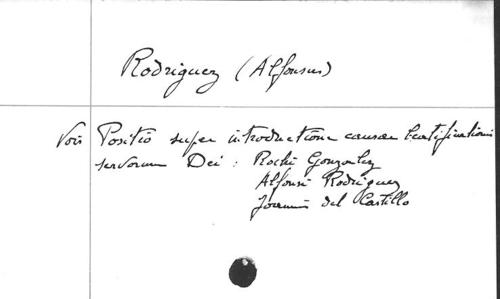 Rodriguez (Alfonsus)
Voir Positio super introductione causae beatificationis
servorum Dei : Rochi Gonzalez
Alfonsi Rodriguez
Joannis del Castillo